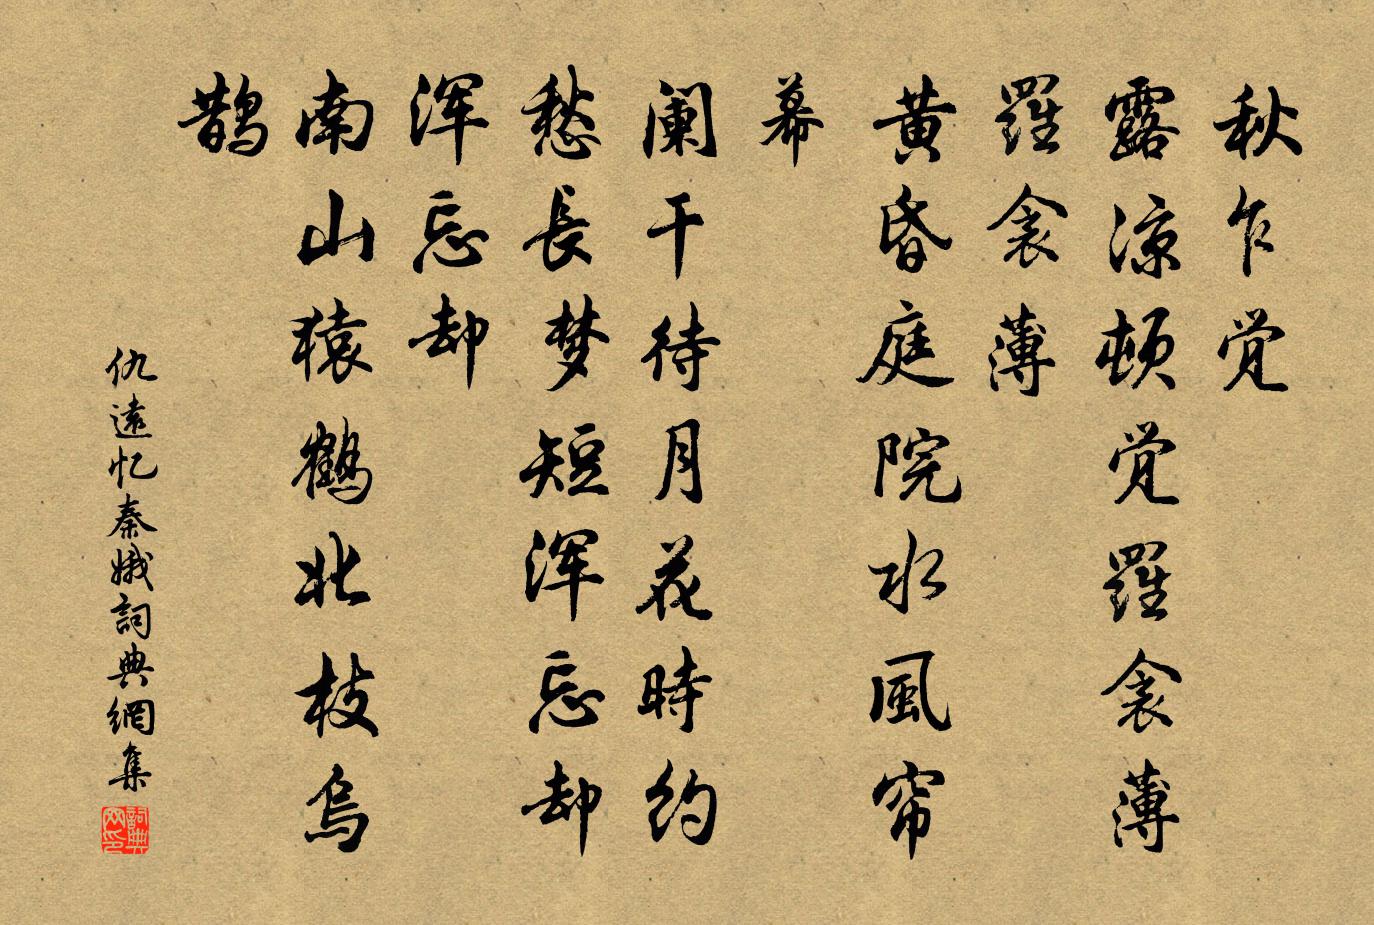 秋乍觉
露凉顿觉羅衾薄
羅衾薄
黄昏庭院水風帘
幕
阑干待月花時约
愁長梦短浑忘却
浑忘却
南山猿鹤北枝烏
鹊
仇遠忆秦娥詞典網集
詞典
网印